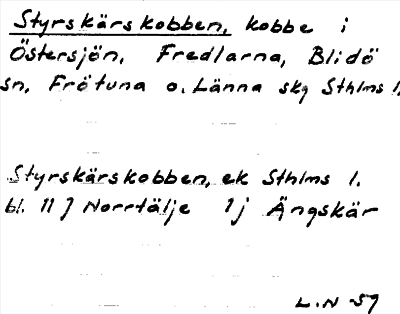 Styrskärskobben, kobbe i
Östersjön, Fredlarna, Blidö
sn, Frötuna o. Länna skg Sthlms l.
Styrskärskobben, ek Sthlms l.
bl. 11 J Norrtälje 1 j Ängskär
L.N 57